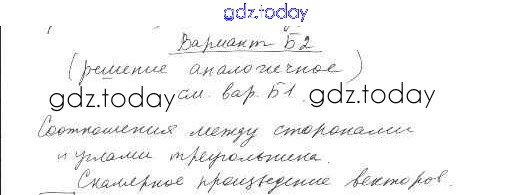 gdz.today
Вариант Б2
(решение аналогичное)
gdz.today см. вар. Б1. gdz.today
Соотношения между сторонами
и углами треугольника.
Скалярное произведение векторов.